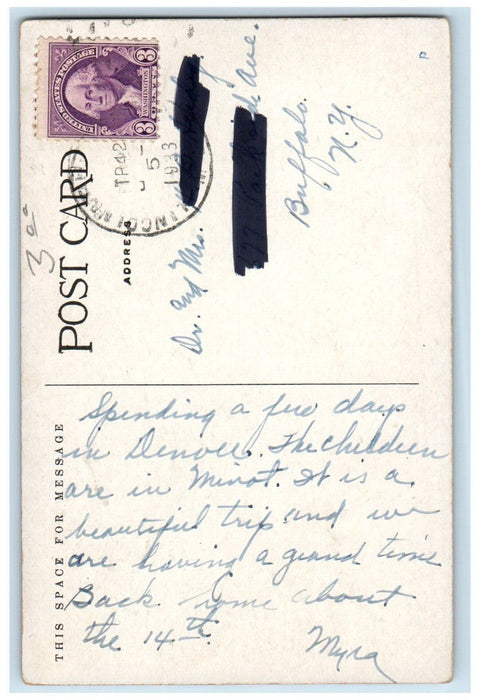 UNITED STATES POSTAGE
WASHINGTON
3 3
LINCOLN
TR42
5
1933
3 00
POST CARD
ADDRESS
Dr. and Mrs.
Ave.
Buffalo.
N.Y.
P
THIS SPACE FOR MESSAGE
Spending a few days
in Denver. The children
are in Minot. It is a
beautiful trip and we
are having a grand time
Back home about
the 14th.
Myra